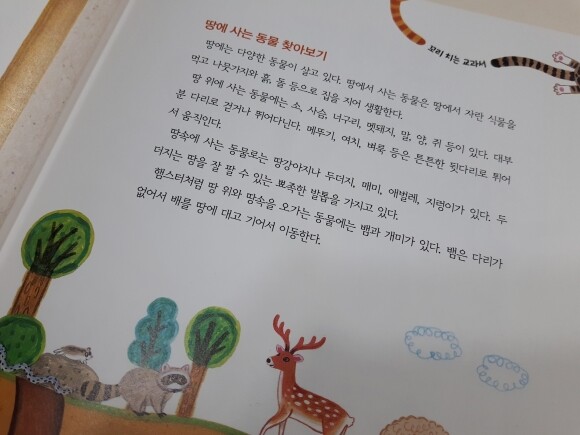 땅에 사는 동물 찾아보기
꼬리 치는 교과서
땅에는 다양한 동물이 살고 있다. 땅에서 사는 동물은 땅에서 자란 식물을
먹고 나뭇가지와 흙, 돌 등으로 집을 지어 생활한다.
땅 위에 사는 동물에는 소, 사슴, 너구리, 멧돼지, 말, 양, 쥐 등이 있다. 대부
분 다리로 걷거나 뛰어다닌다. 메뚜기, 여치, 벼룩 등은 튼튼한 뒷다리로 뛰어
서 움직인다.
땅속에 사는 동물로는 땅강아지나 두더지, 매미, 애벌레, 지렁이가 있다. 두
더지는 땅을 잘 팔 수 있는 뾰족한 발톱을 가지고 있다.
햄스터처럼 땅 위와 땅속을 오가는 동물에는 뱀과 개미가 있다. 뱀은 다리가
없어서 배를 땅에 대고 기어서 이동한다.